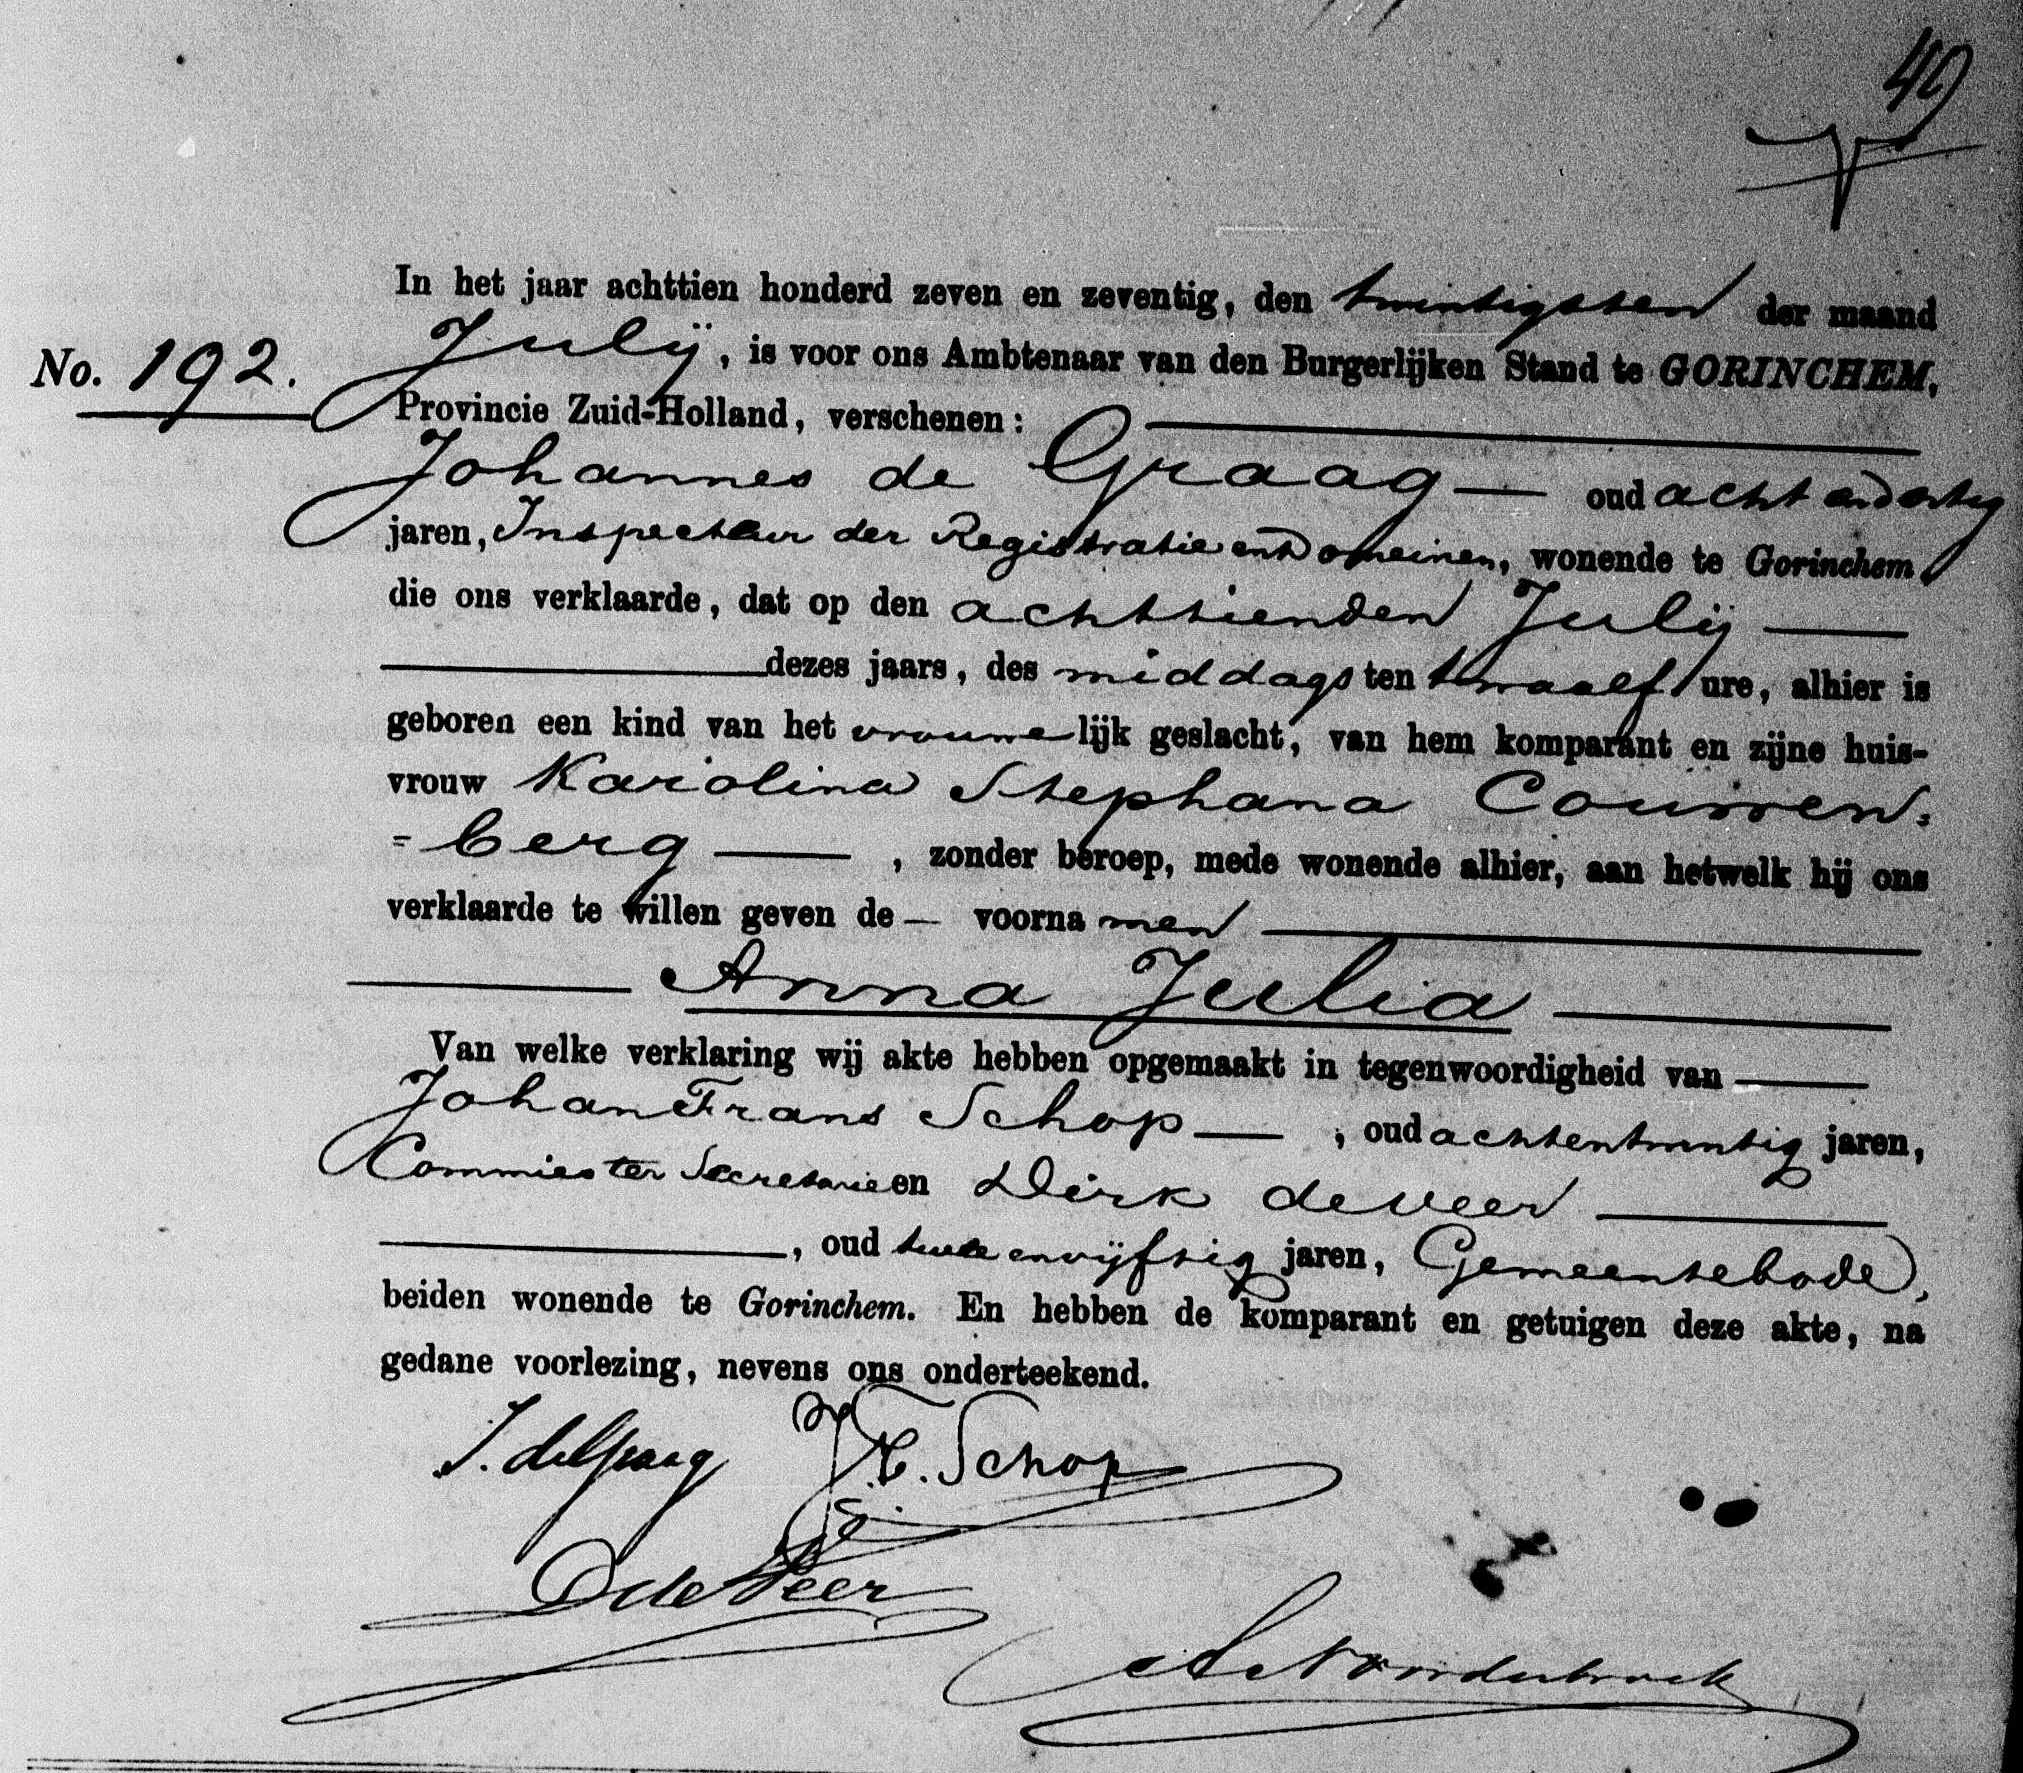 49
In het jaar achttien honderd zeven en zeventig, den twintigsten der maand
No. 192. Julij, is voor ons Ambtenaar van den Burgerlijken Stand te GORINCHEM,
Provincie Zuid-Holland, verschenen:
Johannes de Graag oud acht en dertig
jaren, Inspecteur der Registratie en Domeinen, wonende te Gorinchem
die ons verklaarde, dat op den achttienden Julij
dezes jaars, des middags ten twaalf ure, alhier is
geboren een kind van het vrouwelijk geslacht, van hem komparant en zijne huis-
vrouw Karolina Stephana Couwen=
=berg, zonder beroep, mede wonende alhier, aan hetwelk hij ons
verklaarde te willen geven de voornamen
Anna Julia
Van welke verklaring wij akte hebben opgemaakt in tegenwoordigheid van
Johan Frans Schop, oud achtentwintig jaren,
Commies ter Secretarie en Dirk de Veer
, oud twee en vijftig jaren, Gemeentebode,
beiden wonende te Gorinchem. En hebben de komparant en getuigen deze akte, na
gedane voorlezing, nevens ons onderteekend.
J. de Graag Schop
D de Veer